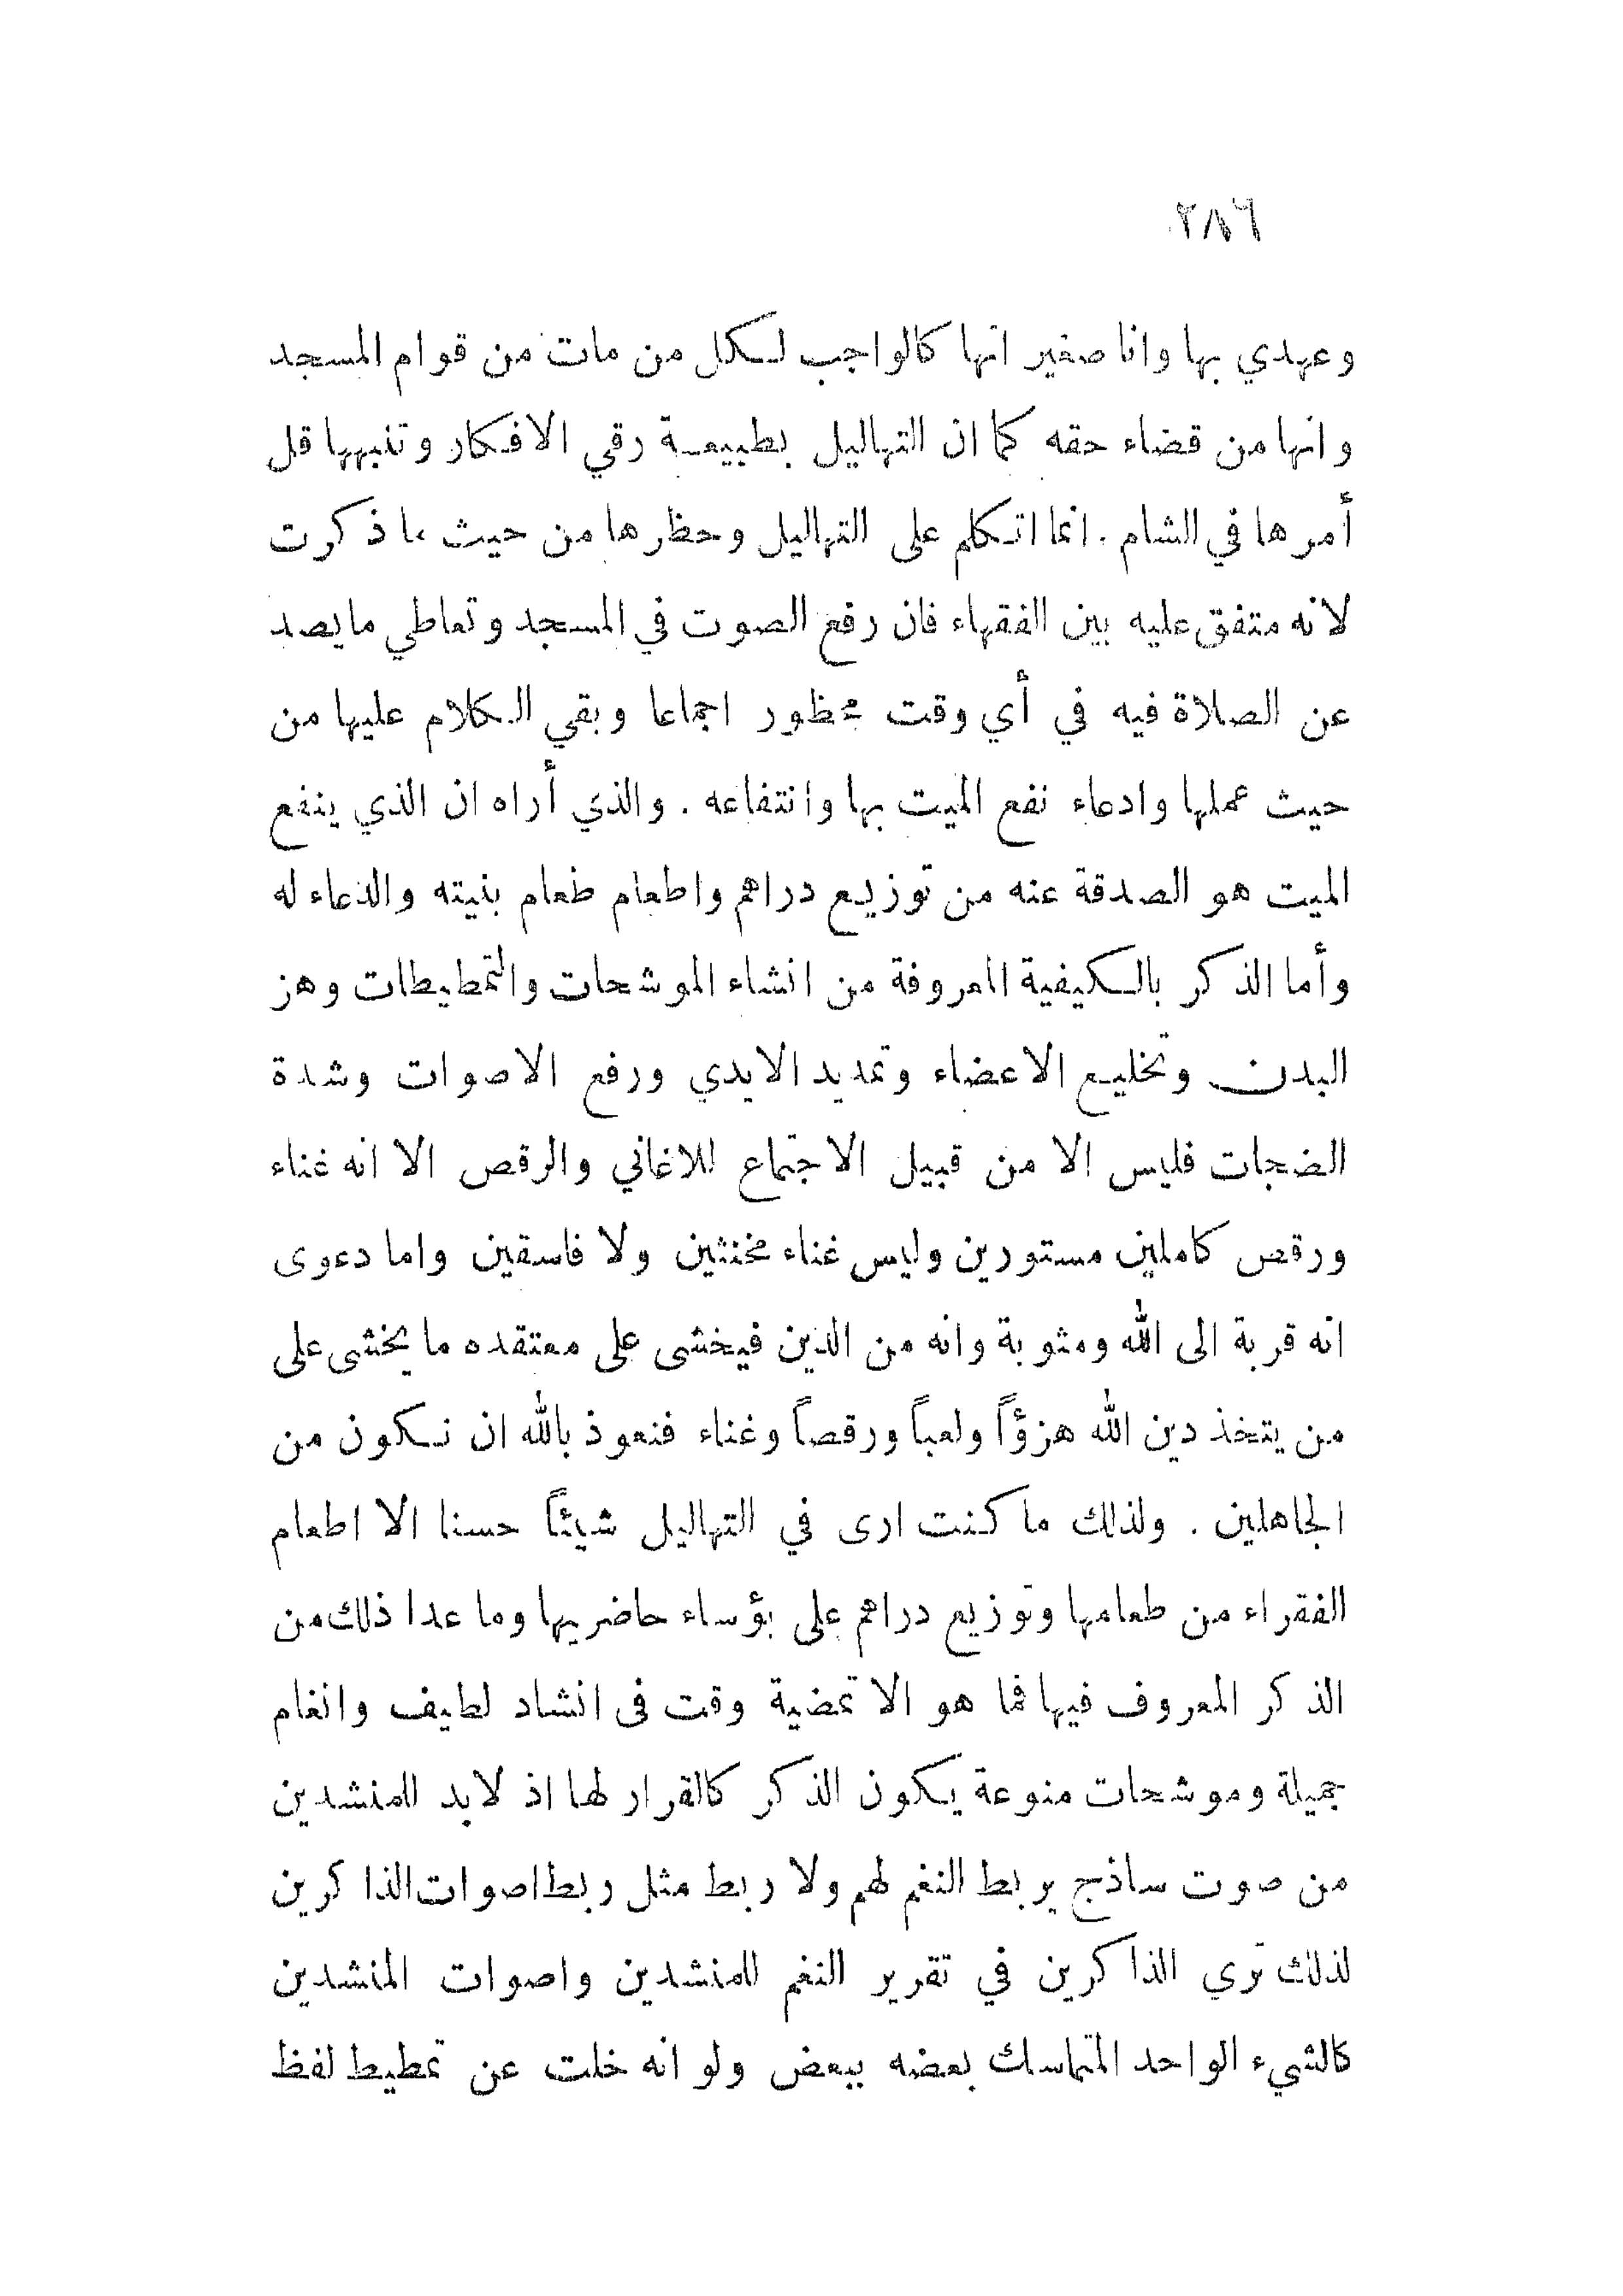 ٢٨٦
وعهدي بها وانا صغير انها كالواجب لكل من مات من قوام المسجد
وانها من قضاء حقه كما ان التهاليل بطبيعة رقي الافكار وتنبهها قل
أمرها في الشام . انما اتكلم على التهاليل وحظرها من حيث ما ذكرت
لانه متفق عليه بين الفقهاء فان رفع الصوت في المسجد وتعاطي مايصد
عن الصلاة فيه في أي وقت محظور اجماعا وبقي الكلام عليها من
حيث عملها وادعاء نفع الميت بها وانتفاعه . والذي أراه ان الذي ينفع
الميت هو الصدقة عنه من توزيع دراهم واطعام طعام بنيته والدعاء له
وأما الذكر بالكيفية المعروفة من انشاء الموشحات والتمطيطات وهز
البدن وتخليع الاعضاء وتمديد الايدي ورفع الاصوات وشدة
الضجات فليس الا من قبيل الاجتماع للاغاني والرقص الا انه غناء
ورقص كاملين مستورين وليس غناء مخنثين ولا فاسقين واما دعوى
انه قربة الى الله ومثوبة وانه من الدين فيخشى على معتقده ما يخشى على
من يتخذ دين الله هزؤاً ولعباً ورقصاً وغناء فنعوذ بالله ان نكون من
الجاهلين . ولذلك ما كنت ارى في التهاليل شيئاً حسنا الا اطعام
الفقراء من طعامها وتوزيع دراهم على بؤساء حاضريها وما عدا ذلك من
الذكر المعروف فيها فما هو الا تمضية وقت فى انشاد لطيف وانغام
جميلة وموشحات منوعة يكون الذكر كالقرار لها اذ لابد للمنشدين
من صوت ساذج يربط النغم لهم ولا ربط مثل ربط اصوات الذاكرين
لذلك ترى الذاكرين في تقرير النغم للمنشدين واصوات المنشدين
كالشيء الواحد المتماسك بعضه ببعض ولو انه خلت عن تمطيط لفظ